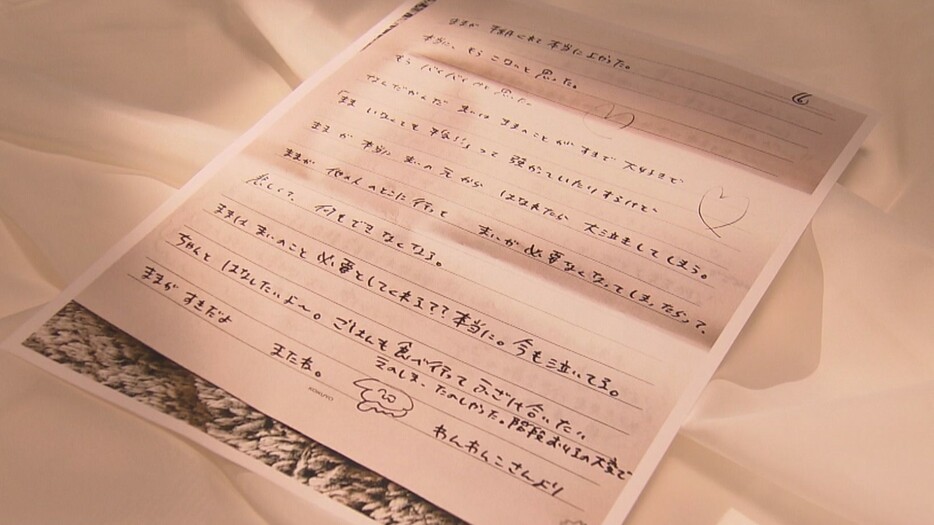 ままが 本当によかった。
本当に、もう こないと思った。
もう バイバイかと思った。
なんだかんだ まいは ままのことが すきで 大好きで
「まま いなくても 平気!」って 強がっていたりするけど、
ままが 本当に まいの元から はなれたら 大泣きしてしまう。
ままが 他の人のどこに行って まいが 必要なくなってしまったらって、
悲しくて、何もできなくなる。
ままは まいのこと 必要としてくれてる?? 本当に。今も泣いてる。
ちゃんと はなしたいよ〜。ごはんも食べ行って ふざけ合いたい
ままが すきだよ たのしかった。階段
またね。
KOKUYO
わんわんこさんより